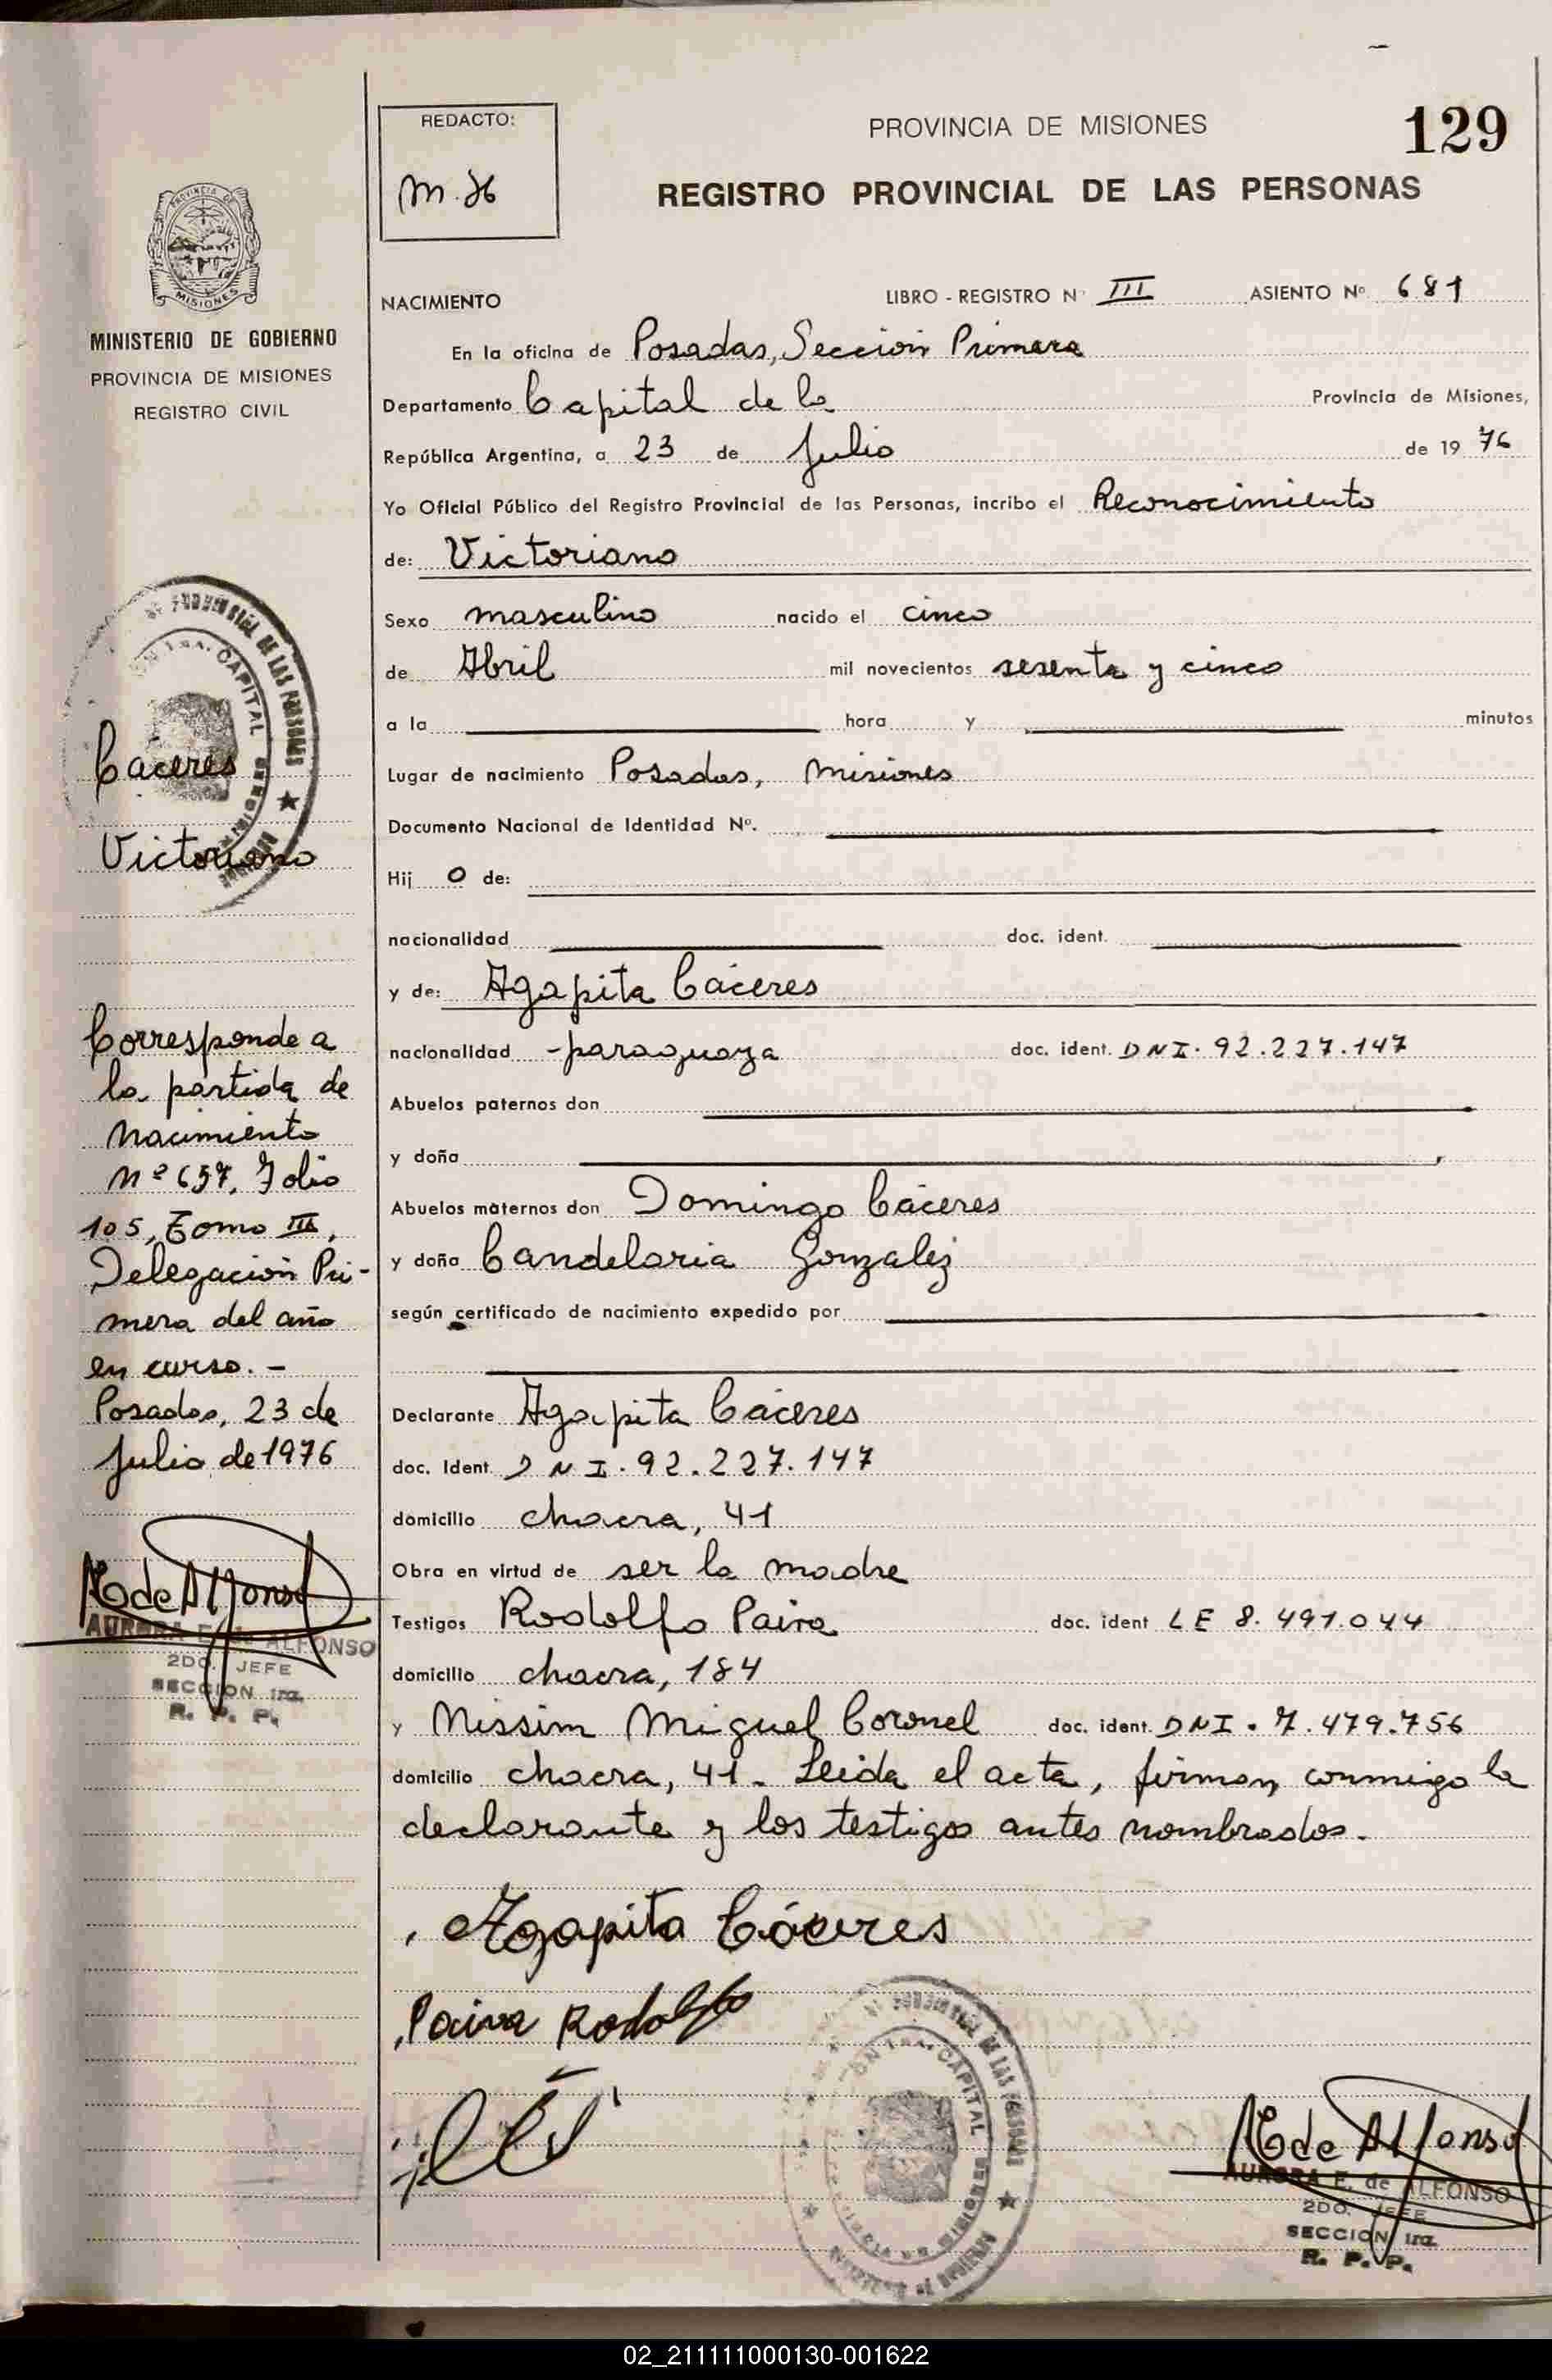 129
REDACTO:
M. J6
PROVINCIA DE MISIONES
REGISTRO PROVINCIAL DE LAS PERSONAS
MISIONES
MINISTERIO DE GOBIERNO
PROVINCIA DE MISIONES
REGISTRO CIVIL
NACIMIENTO LIBRO - REGISTRO Nº III ASIENTO Nº 681
En la oficina de Posadas, Sección Primera
Departamento Capital de la Provincia de Misiones,
República Argentina, a 23 de Julio de 1976
Yo Oficial Público del Registro Provincial de las Personas, incribo el Reconocimiento
de: Victoriano
Sexo masculino nacido el cinco
de Abril mil novecientos sesenta y cinco
a la hora y minutos
Lugar de nacimiento Posadas, Misiones
Documento Nacional de Identidad Nº.
Hij o de:
nacionalidad doc. ident.
y de: Agapita Cáceres
nacionalidad -paraguaya doc. ident. DNI. 92.227.147
Abuelos paternos don
y doña
Abuelos maternos don Domingo Cáceres
y doña Candelaria Gonzalez
según certificado de nacimiento expedido por
Declarante Agapita Cáceres
doc. Ident. DNI. 92.227.147
domicilio chacra, 41
Obra en virtud de ser la madre
Testigos Rodolfo Paiva doc. ident LE 8.491.044
domicilio chacra, 184
y Nissim Miguel Coronel doc. ident. DNI. 7.479.756
domicilio chacra, 41. Leida el acta, firman, conmigo la
declarante y los testigos antes nombrados.
Agapita Cáceres
Paiva Rodolfo
Cáceres
Victoriano
Corresponde a
la partida de
Nacimiento
Nº 657, Folio
105, Tomo III,
Delegación Pri-
mera del año
en curso. -
Posadas, 23 de
Julio de 1976
AURORA E. de ALFONSO
2DO. JEFE
SECCION 1ra.
R. P. P.
CAPITAL
AURORA E. de ALFONSO
2DO. JEFE
SECCION 1ra.
R. P. P.
02_211111000130-001622